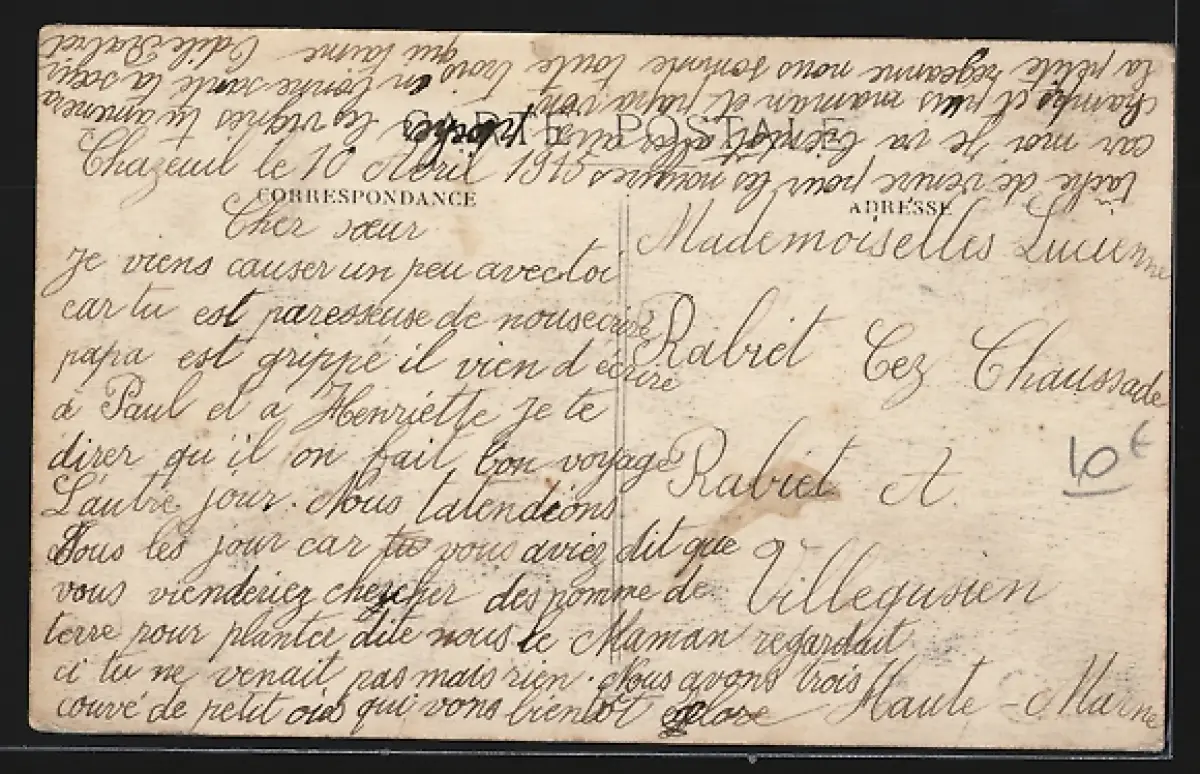 CARTE POSTALE
CORRESPONDANCE
ADRESSE
Chazeuil le 10 Avril 1915
Cher sœur
Je viens causer un peu avec toi
car tu est paresseuse de nous ecrire
papa est grippé il vien d écrire
a Paul et a Henriette Je te
direr qu'il on fait bon voyage
L'autre jour. Nous tatendions
Tous les jour car tu vous aviez dit que
vous vienderiez chercher des pomme de
terre pour planter dite nous le Maman regardait
ci tu ne venait pas mais rien. Nous avons trois
couvé de petit ois qui vons bientot eclore
tache de venire pour les
car moi Je va bientot aler les vignes tu amenera
champs et puis maman et papa vont
la petite regeanne nous somme toute trois en bonne santé ta sœur
qui taime Odile Rabiet
Mademoiselles Lucienne
Rabiet Cez Chaussade
Rabiet A.
Villegusien
Haute-Marne
10€